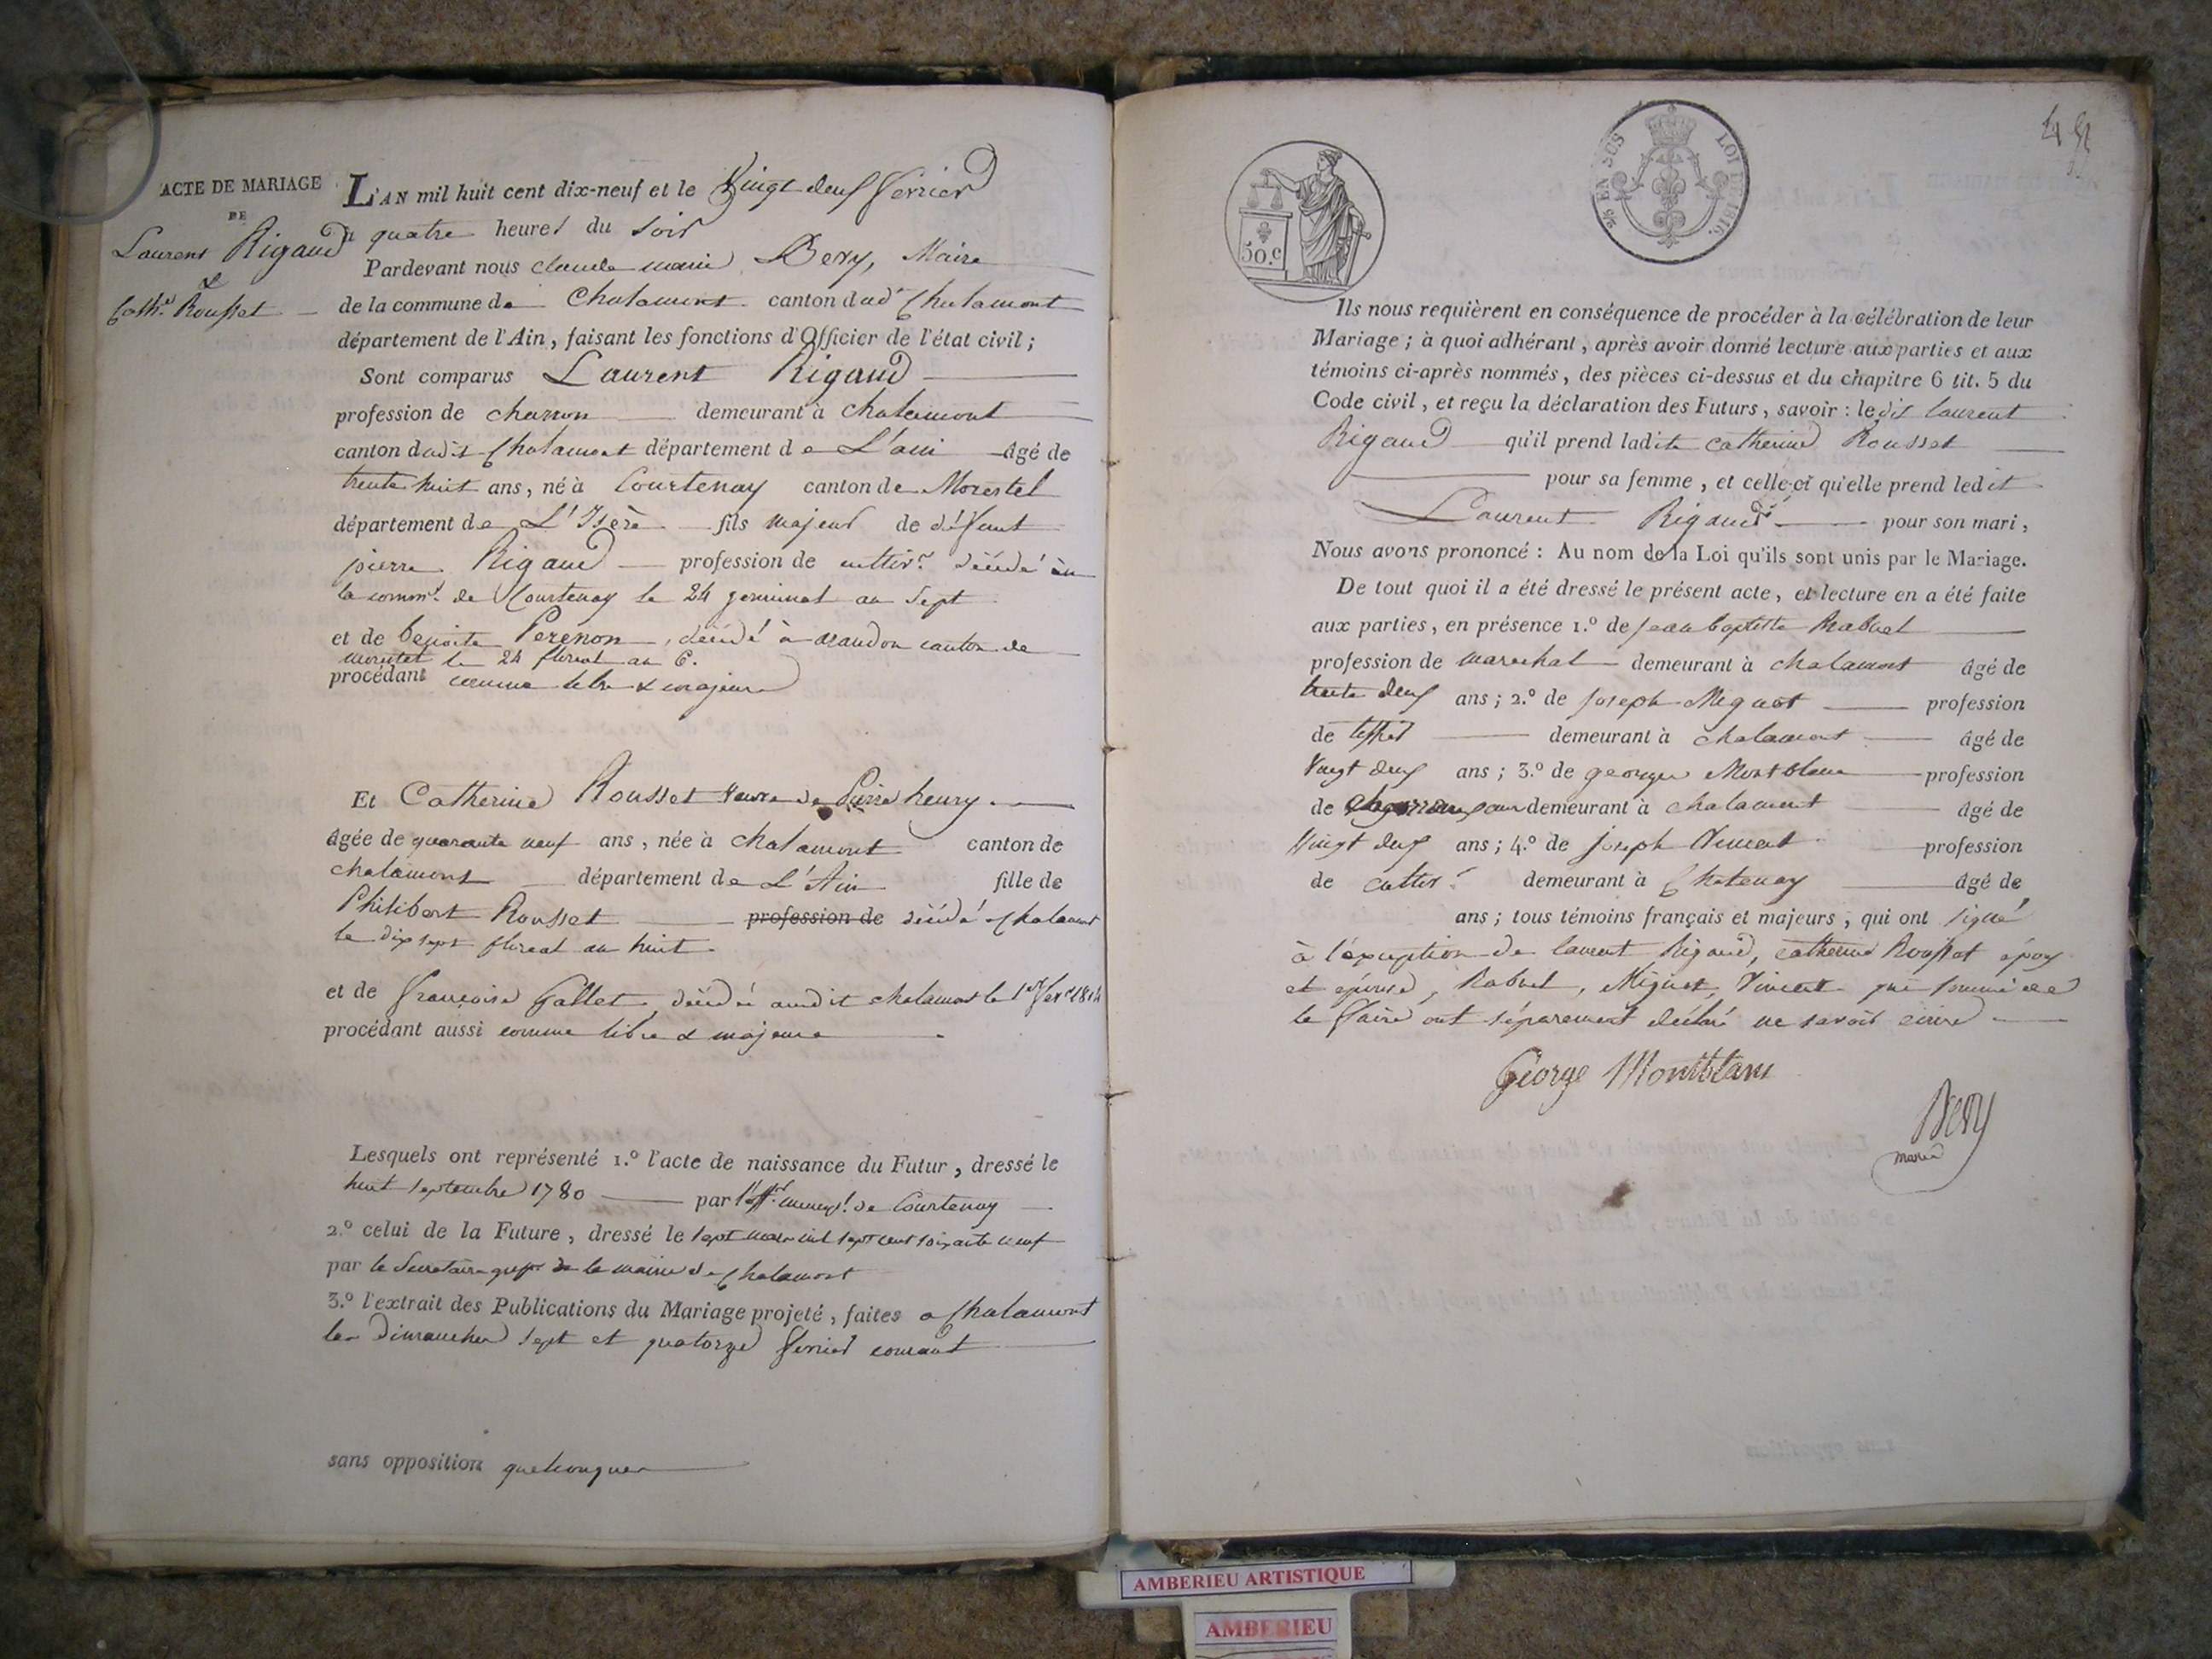 ACTE DE MARIAGE
DE
Laurent Rigaud
&
Cathne Rousset
L'AN mil huit cent dix-neuf et le Vingt deux fevrier
à quatre heures du soir
Pardevant nous claude marie Bery, Maire
de la commune de Chalamont canton dudt Chalamont
département de l'Ain, faisant les fonctions d'Officier de l'état civil;
Sont comparus Laurent Rigaud
profession de charron demeurant à chalamont
canton dudit Chalamont département de L'ain âgé de
trente huit ans, né à Courtenay canton de Morestel
département de L'Isère fils majeur de défunt
pierre Rigaud profession de culttivr. décédé en
la commne. de Courtenay le 24 germinal an sept
et de benoite Perenon, décédé à arandon canton de
morestel le 24 floreal an 6.
procédant comme libre & majeur
Et Catherine Rousset veuve de Pierre henry.
âgée de quarante neuf ans, née à chalamont canton de
chalamont département de L'Ain fille de
Philibert Rousset profession de décédé a Chalamont
le dix sept floreal an huit.
et de françoise Gallet, décédée audit chalamont le 1er fevr 1814
procédant aussi comme libre & majeure
Lesquels ont représenté 1.º l'acte de naissance du Futur, dressé le
huit septembre 1780 par l'offr. municipl. de Courtenay
2.º celui de la Future, dressé le sept mars mil sept cent soixante neuf
par le Secretaire greffr de la mairie de Chalamont
3.º l'extrait des Publications du Mariage projeté, faites a Chalamont
les Dimanches sept et quatorze fevrier courant
sans opposition quelconques
50.c
EN SUS
LOI DE 1816.
45
Ils nous requièrent en conséquence de procéder à la célébration de leur
Mariage; à quoi adhérant, après avoir donné lecture aux parties et aux
témoins ci-après nommés, des pièces ci-dessus et du chapitre 6 tit. 5 du
Code civil, et reçu la déclaration des Futurs, savoir: ledit laurent
Rigaud qu'il prend ladite catherine Rousset
pour sa femme, et celle-ci qu'elle prend ledit
Laurent Rigaud pour son mari,
Nous avons prononcé: Au nom de la Loi qu'ils sont unis par le Mariage.
De tout quoi il a été dressé le présent acte, et lecture en a été faite
aux parties, en présence 1.º de jean baptiste Rabuel
profession de marechal demeurant à chalamont âgé de
trente deux ans; 2.º de joseph Miguet profession
de tessier demeurant à chalamont âgé de
Vingt deux ans; 3.º de georges Montblanc profession
de demeurant à chalamont âgé de
Vingt deux ans; 4.º de joseph Vincent profession
de cultivr. demeurant à Chatenay âgé de
ans; tous témoins français et majeurs, qui ont signé
à l'exception de laurent Rigaud, catherine Rousset époux
et épouse, Rabuel, Miguet, Vincent qui sommé de
le faire ont séparement déclaré ne savoir ecrire
George Montblanc
Bery
maire
AMBERIEU ARTISTIQUE
AMBERIEU